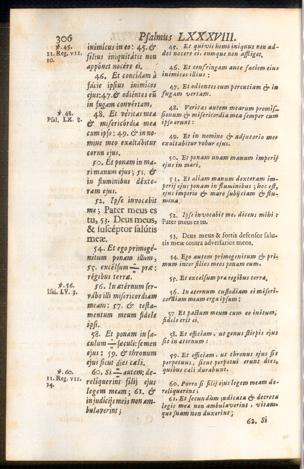 306 Psalmus LXXXVIII.
℣. 45.
11. Reg. VII.
10.
℣. 48.
Psal. LX. 8.
℣. 56.
Isai. LV. 3.
℣. 60.
11. Reg. VII.
14.
inimicus in eo: 45. &
filius iniquitatis non
appónet nocére ei.
46. Et concídam à
fácie ipsíus inimícos
ejus: 47. & odiéntes eū
in fugam convértam.
48. Et véritas mea
& misericórdia mea
cum ipso: 49. & in nó-
mine meo exaltábitur
cornu ejus.
50. Et ponam in ma-
ri manum ejus; 51. &
in flumínibus déxte-
ram ejus.
52. Ipse invocábit
me; Pater meus es
tu, 53. Deus meus,
& suscéptor salútis
meæ.
54. Et ego primogé-
nitum ponam illum;
55. excélsum ÷ præ:
régibus terræ.
56. In ætérnum ser-
vábo illi misericórdiam
meam: 57. & testa-
méntum meum fidéle
ipsi.
58. Et ponam in sæ-
culum ÷ sæculi: semen
ejus: 59. & thronum
ejus sicut dies cæli.
60. Si ÷ autem: de-
relíquerint fílij ejus
legem meam; 61. &
in judícijs meis non am-
buláverint;
45. Et quivis homo iniquus non ad-
det nocere ei, eumque non affliget.
46. Et confringam ante faciem ejus
inimicos illius:
47. Et odientes eum percutiam & in
fugam vertam.
48. Veritas autem mearum promis-
sionum & misericordia mea semper cum
ipso erunt:
49. Et in nomine & adjutorio meo
exaltabitur robur ejus.
50. Et ponam unam manum imperij
ejus in mari,
51. Et aliam manum dexteram im-
perij ejus ponam in fluminibus; hoc est,
ejus imperio & mare subijciam & flu-
mina.
52. Ipse invocabit me, dicens mihi:
Pater meus es tu.
53. Deus meus & fortis defensor salu-
tis meæ contra adversarios meos.
54. Ego autem primogenitum & pri-
mum inter filios meos ponam eum.
55. Et excelsum præ regibus terra,
56. In æternum custodiam ei miseri-
cordiam meam erga ipsum:
57. Et pactum meum cum eo initum,
fidele erit ei.
58. Et efficiam, ut genus stirpis ejus
sit in æternum:
59. Et efficiam, ut thronus ejus sit
perpetuus, sicut perpetui erunt dies,
quibus cæli durabunt.
60. Porro si filij ejus legem meam de-
reliquerint;
61. Et secundum judicata & decreta
legis meæ non ambulaverint, vitam-
que suam non duxerint;
62. Si